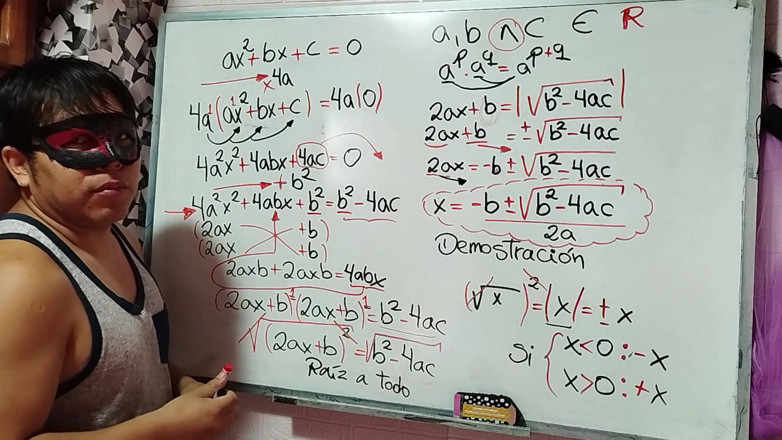 ax² + bx + c = 0
x4a
4a¹(ax¹² + bx + c) = 4a(0)
4a²x² + 4abx + 4ac = 0
+ b²
4a²x² + 4abx + b² = b² - 4ac
(2ax + b)
(2ax + b)
2axb + 2axb = 4abx
(2ax + b)¹(2ax + b)¹ = b² - 4ac
√(2ax + b)² = √b² - 4ac
Raíz a todo
a, b ∧ c ∈ R
aᵖ · a^q = a^(p+q)
2ax + b = |√b² - 4ac|
2ax + b = ± √b² - 4ac
2ax = -b ± √b² - 4ac
x = -b ± √b² - 4ac
2a
Demostración
(√x)² = |x| = ± x
Si { x < 0 : - x
x > 0 : + x